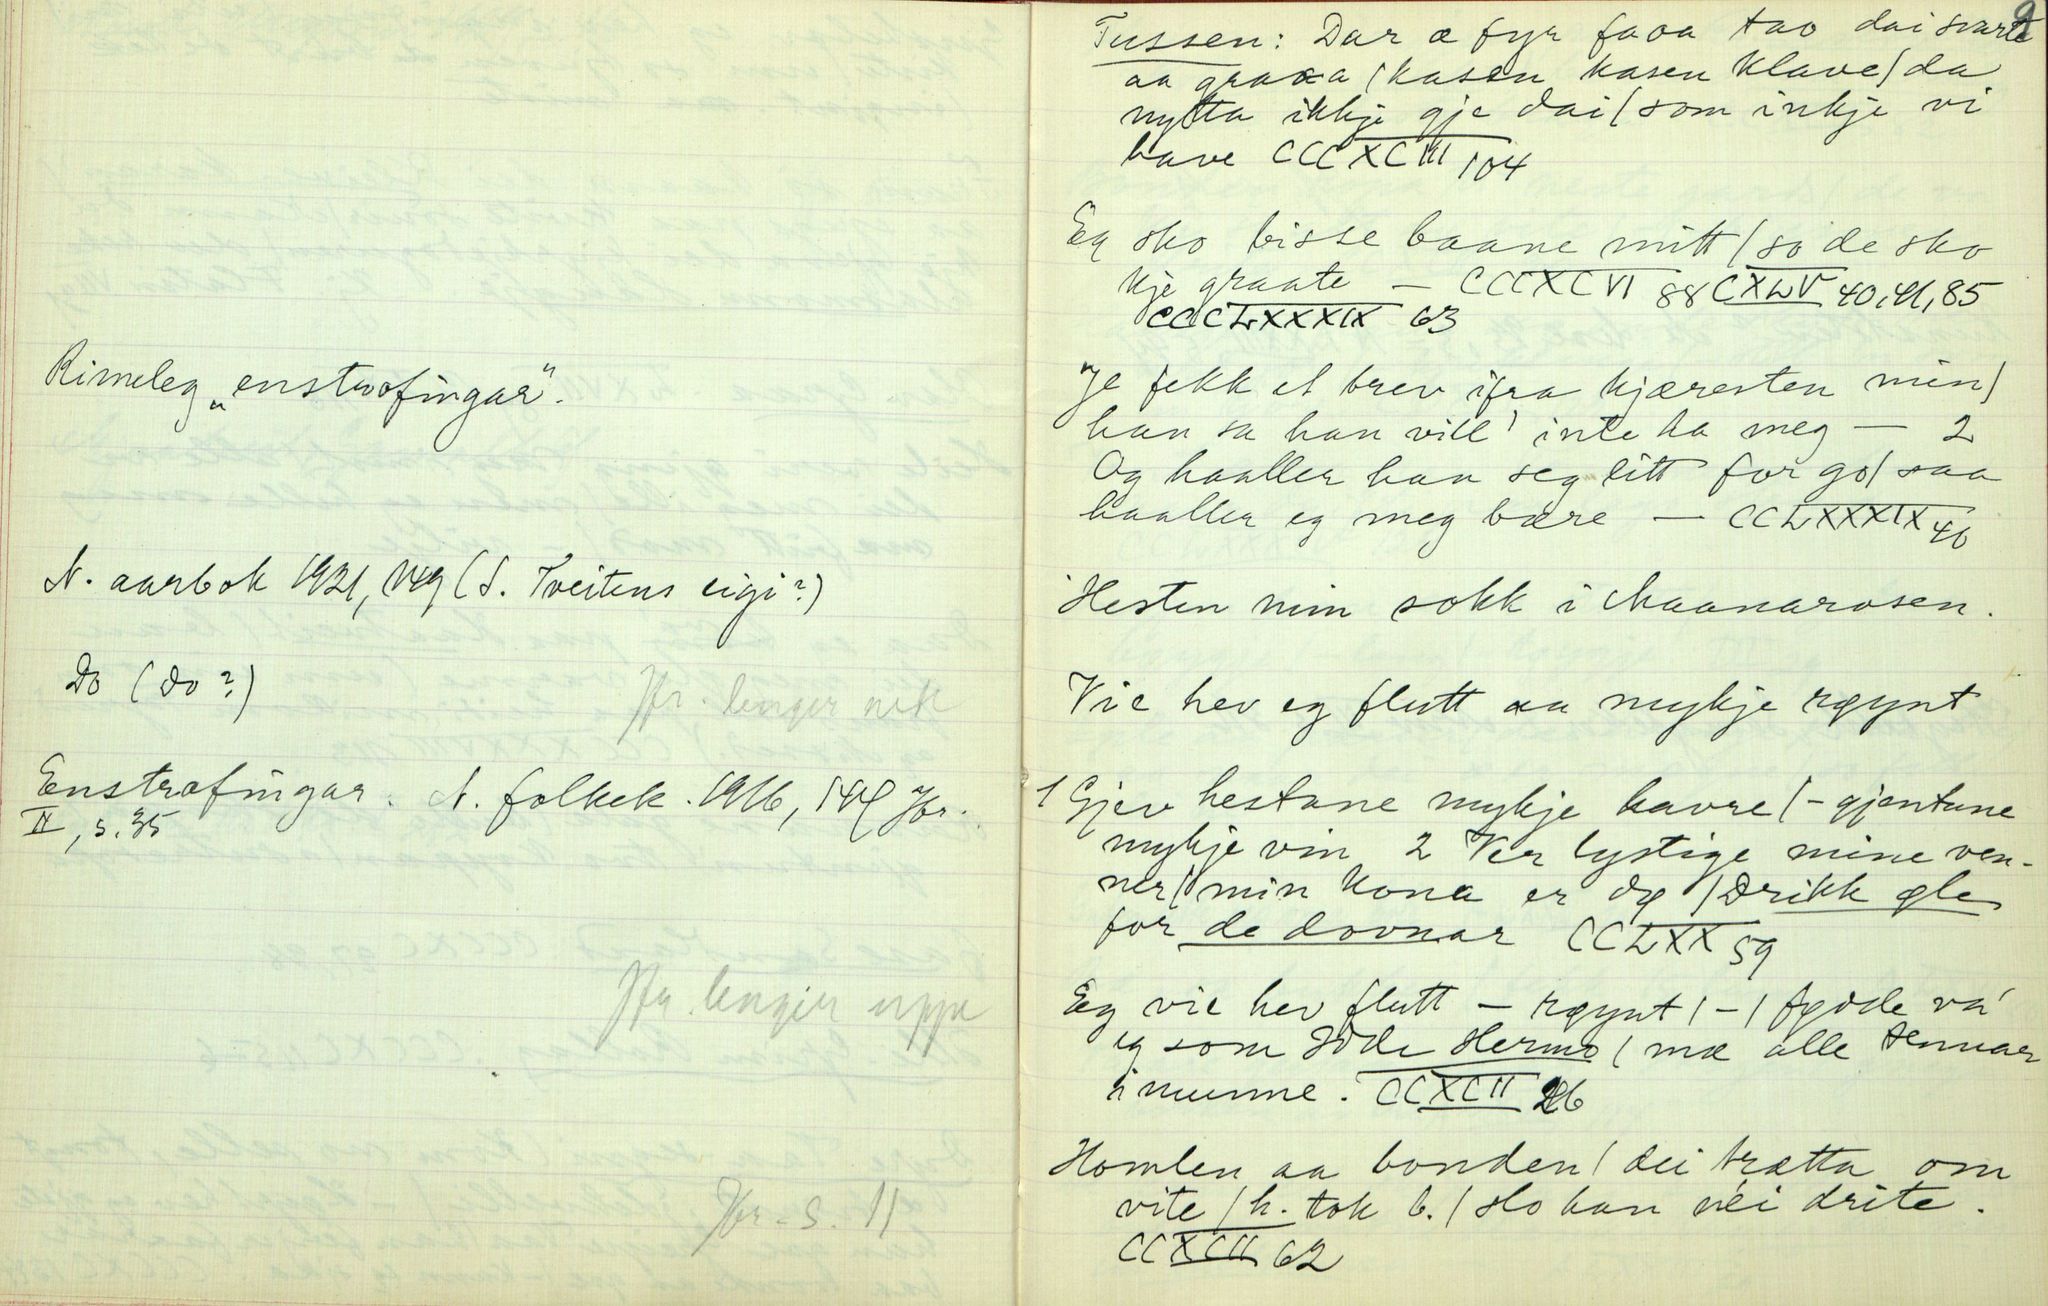 Rimeleg „enstrofingar".
N. aarbok 1921, 149 (S. Tveitens eigi?)
Do (do?)
Jfr. lenger nek
Enstrofingar. N. folkek. 1916, 144 Jfr.
II, s. 35
Jfr. lenger uppe
Jfr. s. 11
9
Tussen: Dar æ fyr faoa tao dai svarte
aa graoa / kasen kasen klave / da
nytta ikkje gje dai / som inkje vi
have CCCXCIII 104
Eg sko bisse baane mitt / so de sko
kje graate — CCCXCVI 88 CXLV 40, 41, 85
CCCLXXXIX 63
Je fekk et brev ifra kjæresten min /
han sa han vill' inte ha meg — 2
Og haaller han seg litt for go / saa
haaller eg meg bære — CCLXXXIX 46
Hesten min sokk i Maanarosen.
Vie hev eg flutt aa mykje røynt
1 Gjev hestane mykje havre / - gjentune
mykje vin 2 Ver lystige mine ven-
ner / min kona er dø / Drikk øle
for de dovnar CCLXX 59
Eg vie hev flutt — røynt / - / fødde va'
eg som Jode Hermo / mæ alle tennar
i munne. CCXCII 26
Homlen aa bonden / dei trætta om
vite / h. tok b. / slo han néi drite.
CCXCII 62